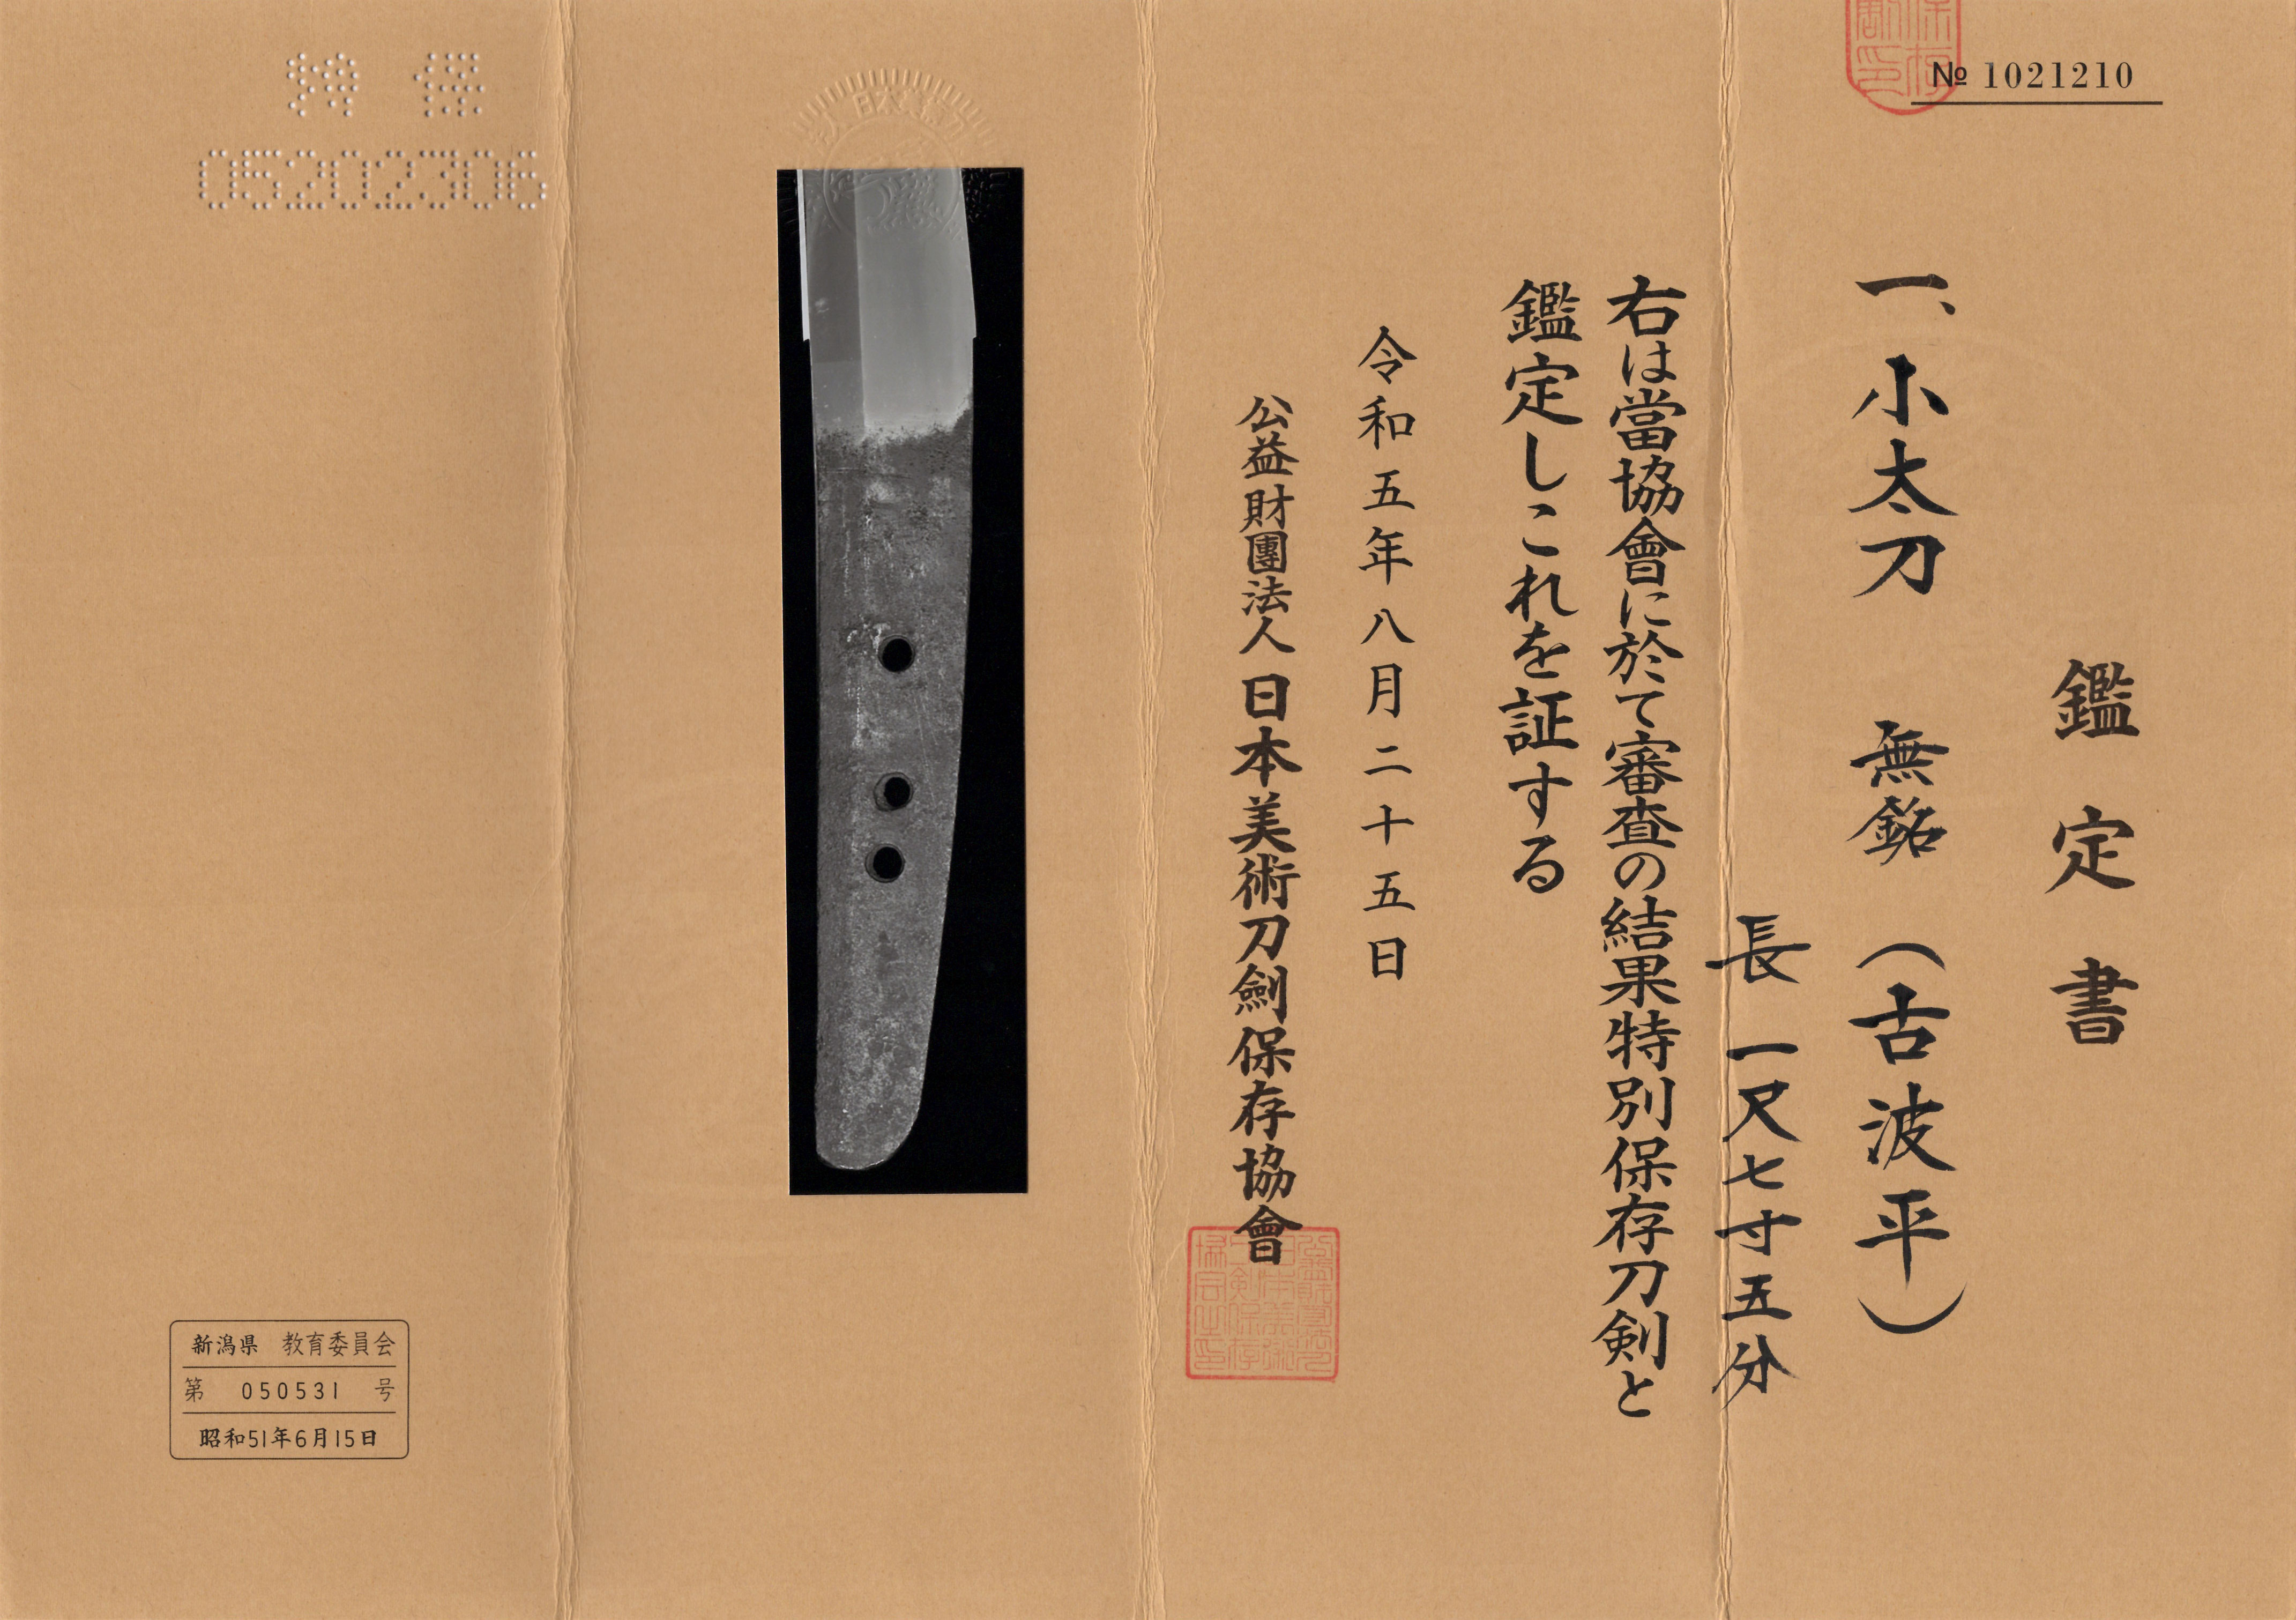 № 1021210
鑑定書
一、小太刀　無銘（古波平）
長 一尺七寸五分
右は當協會に於て審査の結果特別保存刀剣と
鑑定しこれを証する
令和五年八月二十五日
公益財團法人 日本美術刀劍保存協會
特保
05202306
新潟県 教育委員会
第 050531 号
昭和51年6月15日